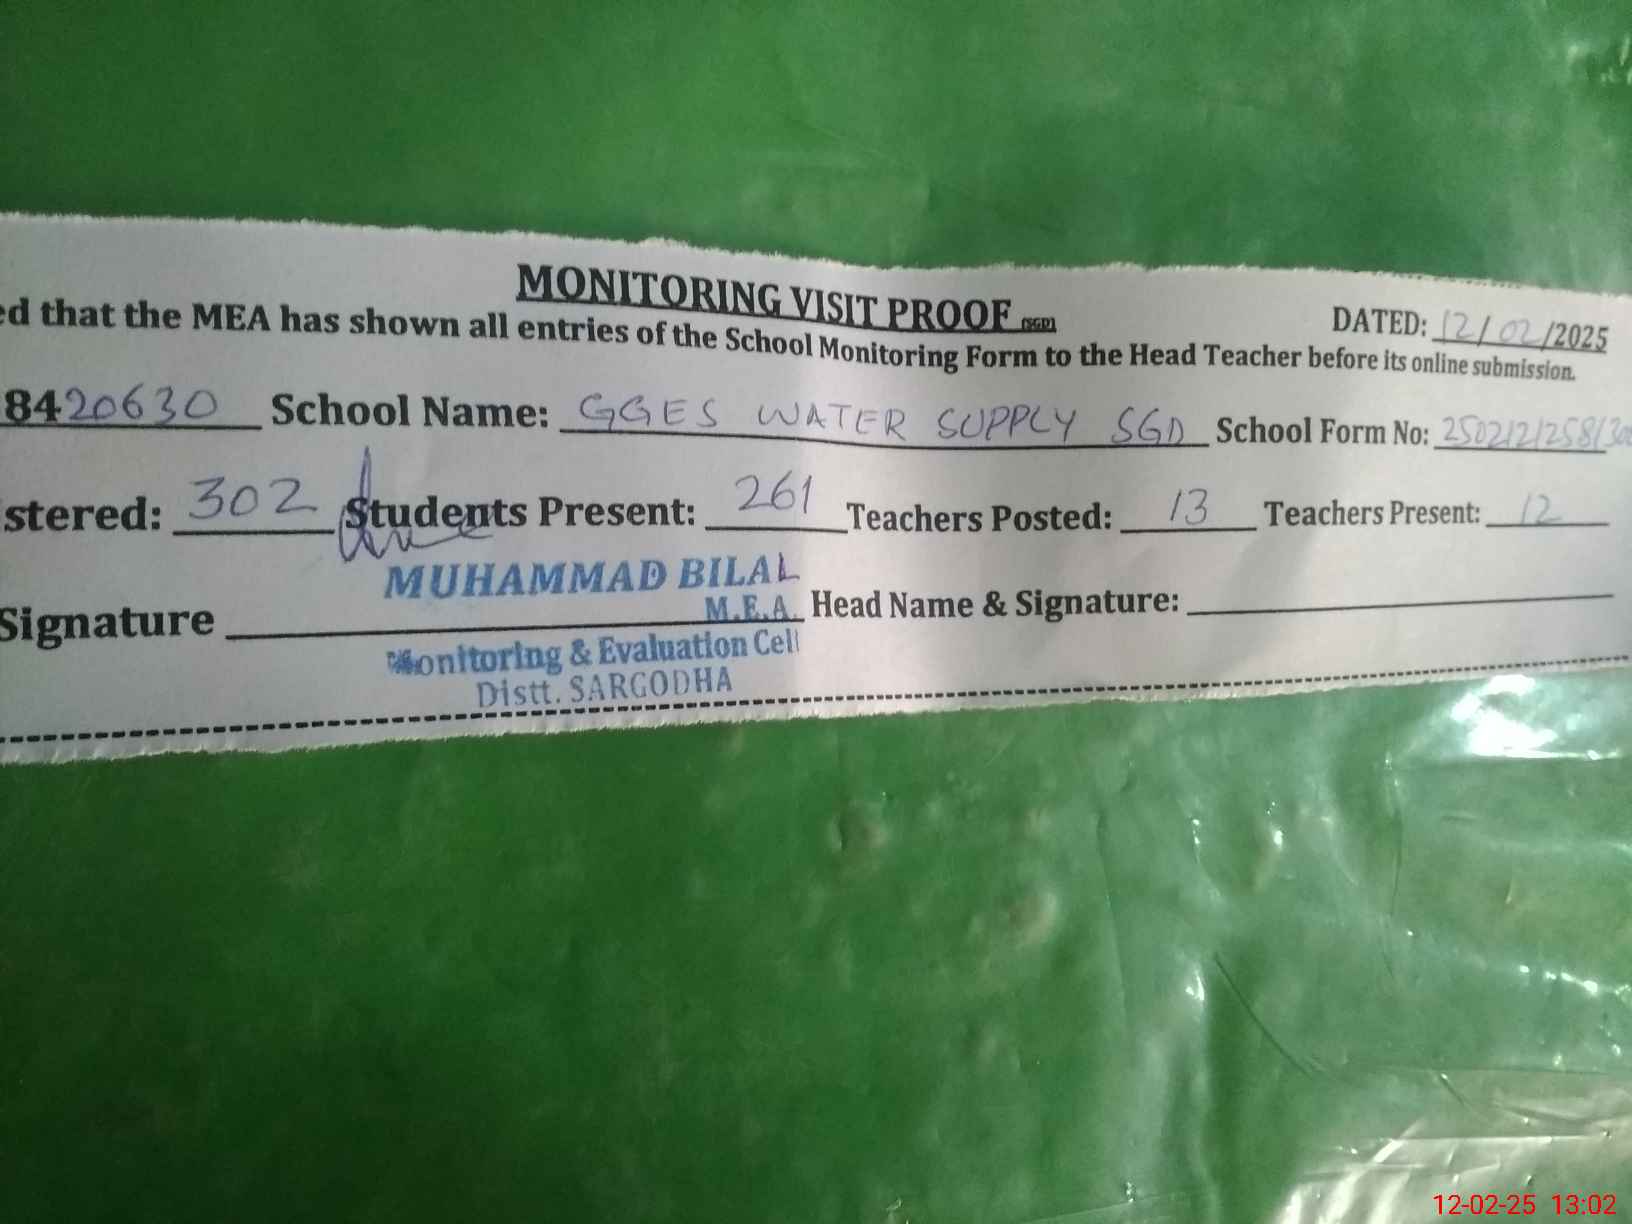 MONITORING VISIT PROOF (SGD)
DATED: 12/02/2025
ed that the MEA has shown all entries of the School Monitoring Form to the Head Teacher before its online submission.
8420630 School Name: GGES WATER SUPPLY SGD School Form No: 250212/258/
stered: 302 Students Present: 261 Teachers Posted: 13 Teachers Present: 12
MUHAMMAD BILAL
M.E.A.
Signature Head Name & Signature:
Monitoring & Evaluation Cell
Distt. SARGODHA
12-02-25 13:02